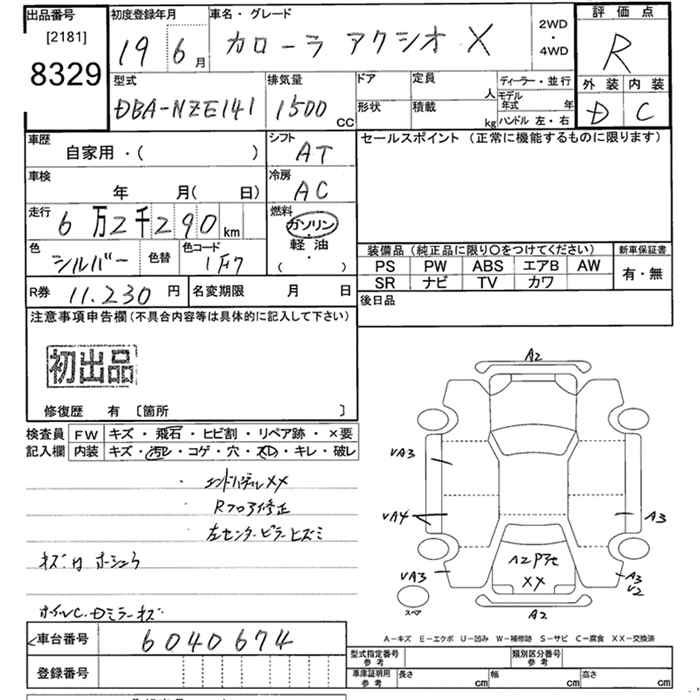 出品番号 初度登録年月 車名・グレード 評価点
[2181] 19 6月 カローラ アクシオ X 2WD・4WD R
8329 外装 内装
型式 排気量 ドア 定員 人 ディーラー・並行
DBA-NZE141 1500CC 形状 積載 kg モデル年式 年 D C
ハンドル 左・右
車歴 シフト セールスポイント (正常に機能するものに限ります)
自家用・( ) AT
車検 冷房
年 月( 日) AC
走行 燃料
6万2千290km ガソリン
色 色替 色コード 軽油
シルバー 1F7 ( ・ )
装備品(純正品に限り○をつけてください) 新車保証書
PS PW ABS エアB AW 有・無
SR ナビ TV カワ
R券 11.230円 名変期限 月 日 後日品
注意事項申告欄(不具合内容等は具体的に記入して下さい)
初出品
修復歴 有 〔箇所 〕
検査員 FW キズ・飛石・ヒビ割・リペア跡・×要
記入欄 内装 キズ・汚レ・コゲ・穴・スレ・キレ・破レ
XX
Rフロア修正
左センターピラーヒズミ
A2
VA3
VA4
A3
VA3
XX
A3
V2
スペア
A2
A-キズ E-エクボ U-凹み W-補修跡 S-サビ C-腐食 XX-交換済
車台番号 6040674
型式指定番号 参考 類別区分番号 参考
登録番号
車庫証明用 参考 長さ cm 幅 cm 高さ cm